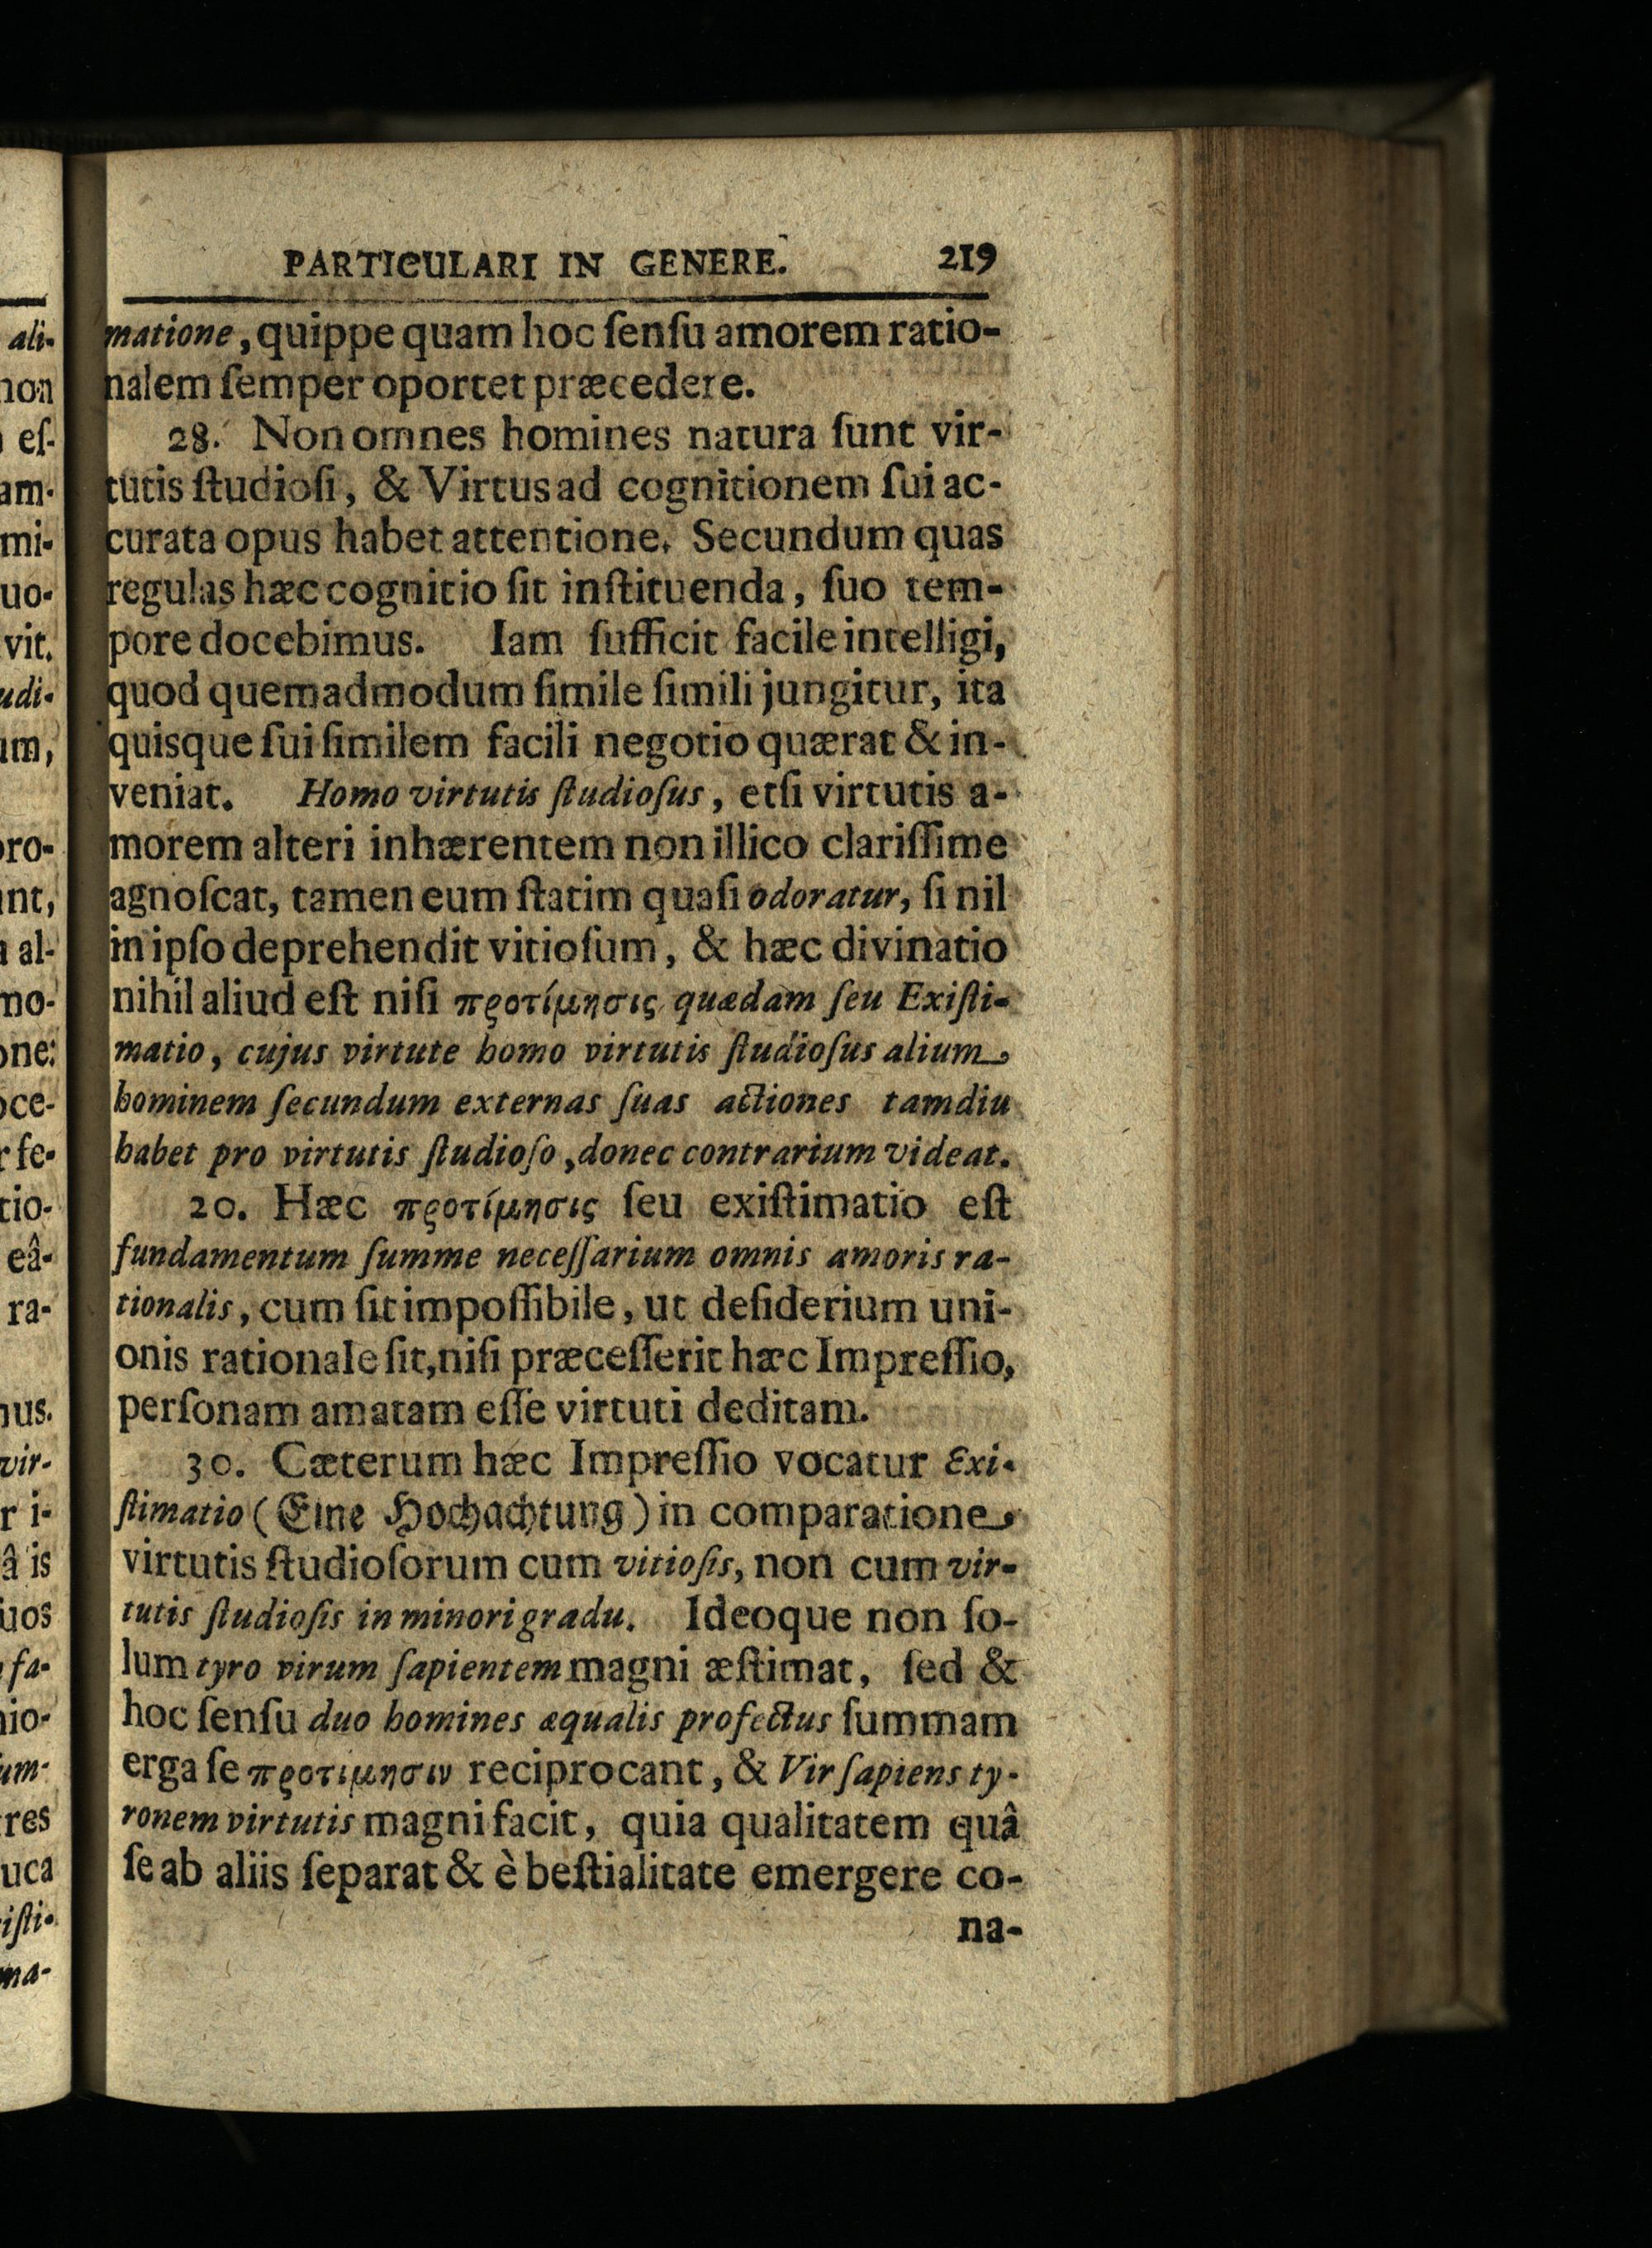 PARTICULARI IN GENERE. 219
matione, quippe quam hoc ſenſu amorem ratio-
nalem ſemper oportet præcedere.
28. Non omnes homines natura ſunt vir-
tutis ſtudioſi, & Virtus ad cognitionem ſui ac-
curata opus habet attentione. Secundum quas
regulas hæc cognitio ſit inſtituenda, ſuo tem-
pore docebimus. Iam ſufficit facile intelligi,
quod quemadmodum ſimile ſimili jungitur, ita
quisque ſui ſimilem facili negotio quærat & in-
veniat. Homo virtutis ſtudioſus, etſi virtutis a-
morem alteri inhærentem non illico clariſſime
agnoſcat, tamen eum ſtatim quaſi odoratur, ſi nil
in ipſo deprehendit vitioſum, & hæc divinatio
nihil aliud eſt niſi προτίμησις quædam ſeu Exiſti-
matio, cujus virtute homo virtutis ſtudioſus alium
hominem ſecundum externas ſuas actiones tamdiu
habet pro virtutis ſtudioſo, donec contrarium videat.
20. Hæc προτίμησις ſeu exiſtimatio eſt
fundamentum ſumme neceſſarium omnis amoris ra-
tionalis, cum ſit impoſſibile, ut deſiderium uni-
onis rationale ſit, niſi præceſſerit hæc Impreſſio,
perſonam amatam eſſe virtuti deditam.
30. Cæterum hæc Impreſſio vocatur Exi-
ſtimatio (Eine Hochachtung) in comparatione
virtutis ſtudioſorum cum vitioſis, non cum vir-
tutis ſtudioſis in minori gradu. Ideoque non ſo-
lum tyro virum ſapientem magni æſtimat, ſed &
hoc ſenſu duo homines æqualis profectus ſummam
erga ſe προτιμησιν reciprocant, & Vir ſapiens ty-
ronem virtutis magni facit, quia qualitatem quâ
ſe ab aliis ſeparat & è beſtialitate emergere co-
na-